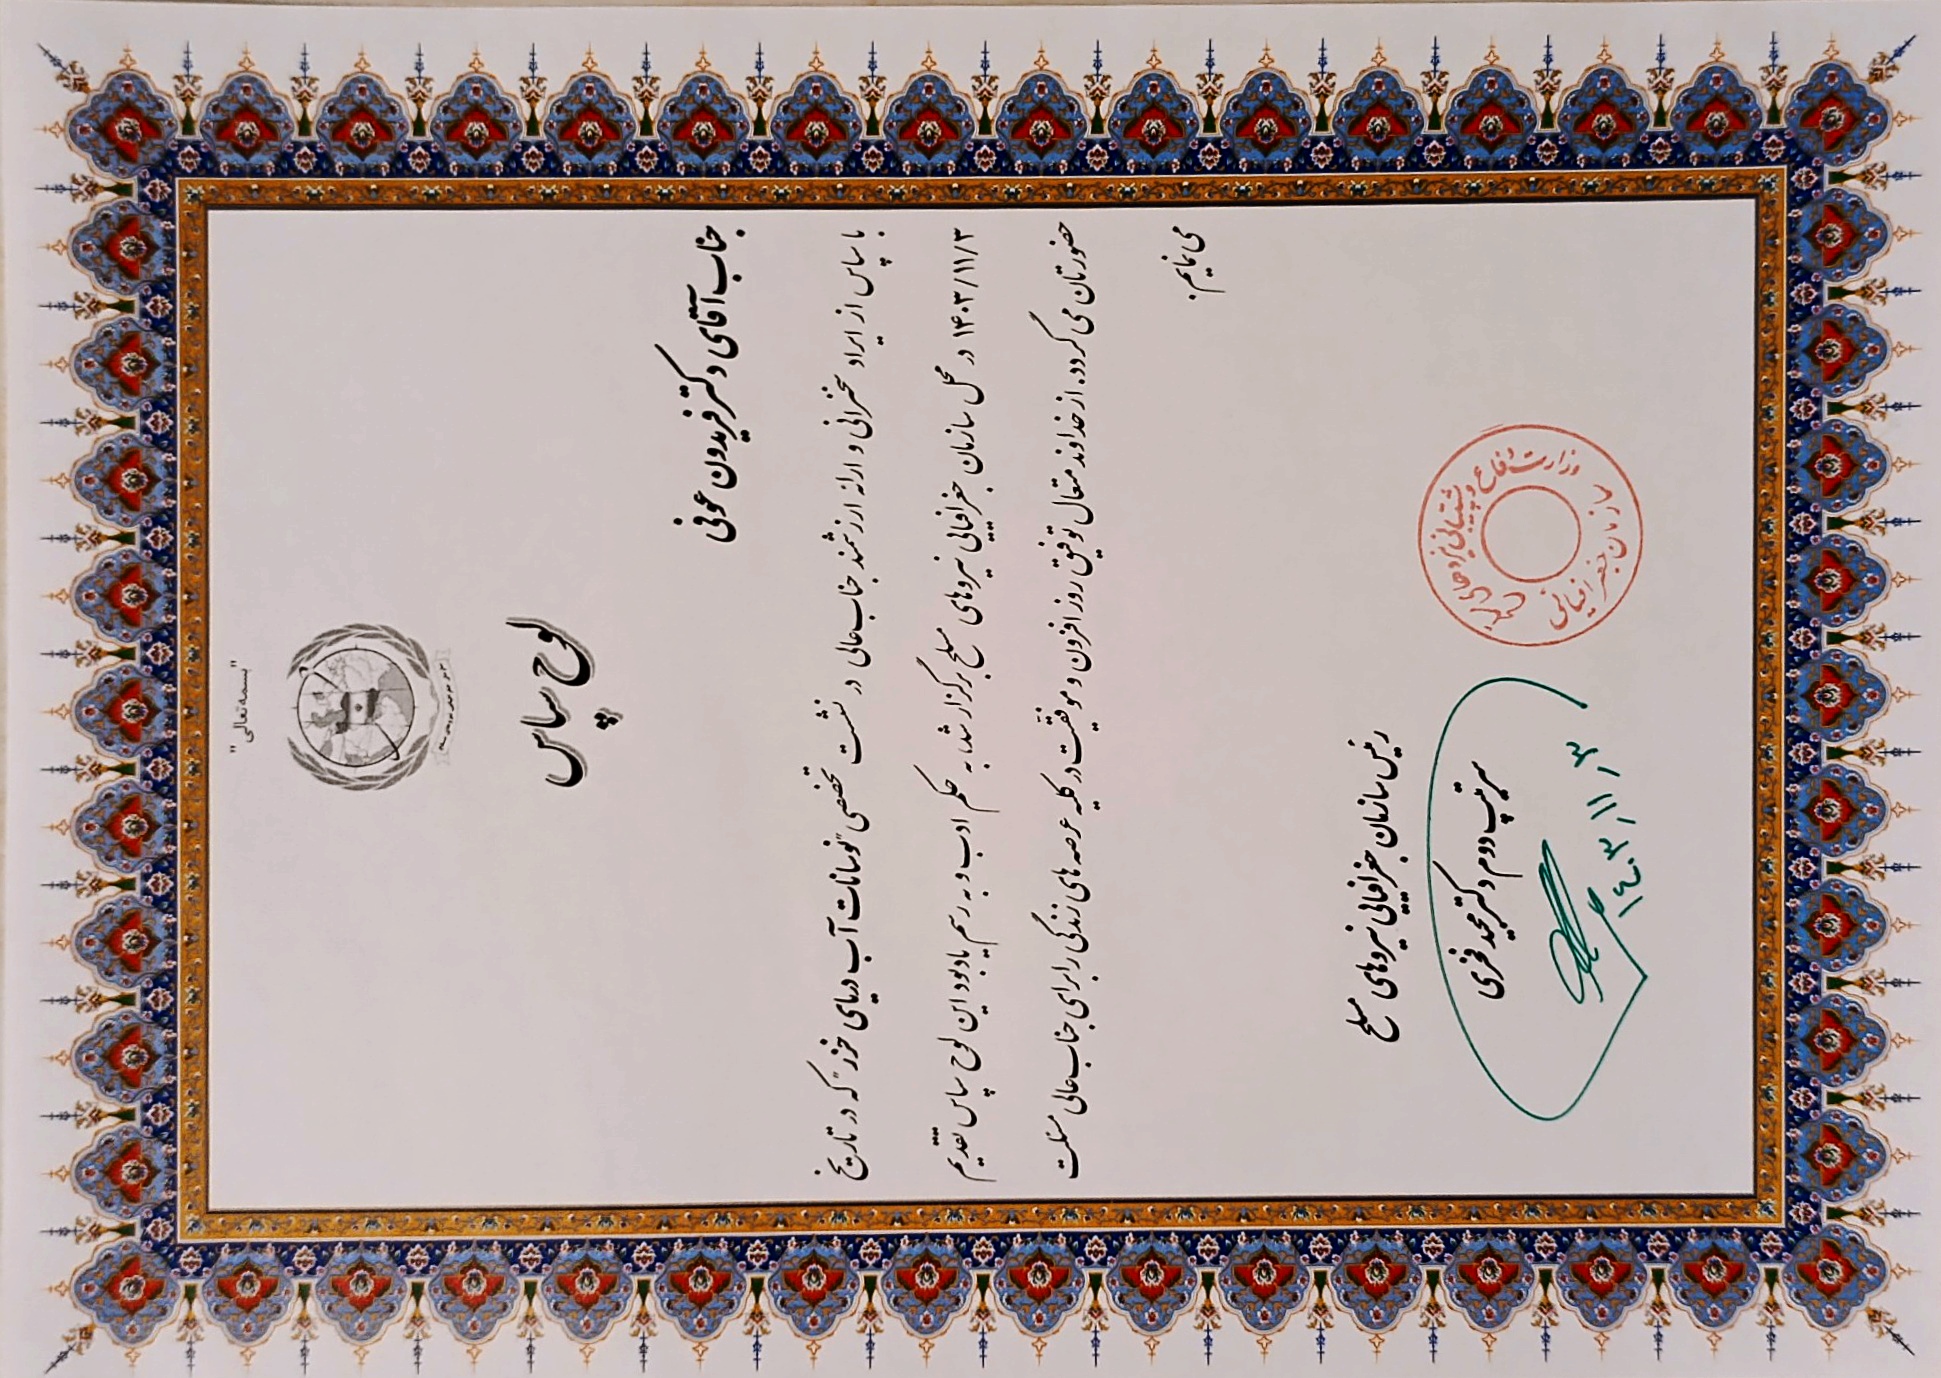 "بسمه تعالی"
لوح سپاس
جناب آقای دکتر فریدون عوفی
با سپاس از ایراد سخنرانی و ارائه ارزشمند جناب عالی در نشست تخصصی "نوسانات آب دریای خزر" که در تاریخ
۱۴۰۳/۱۱/۳ در محل سازمان جغرافیایی نیروهای مسلح برگزار شد، به حکم ادب و به رسم یادبود این لوح سپاس تقدیم
حضورتان می گردد. از خداوند متعال توفیق روز افزون و موفقیت در کلیه عرصه های زندگی را برای جناب عالی مسئلت
می نمایم.
رئیس سازمان جغرافیایی نیروهای مسلح
سرتیپ دوم دکتر مجید فخری
۱۴۰۳/۱۱/۳
وزارت دفاع و پشتیبانی نیروهای مسلح
سازمان جغرافیائی